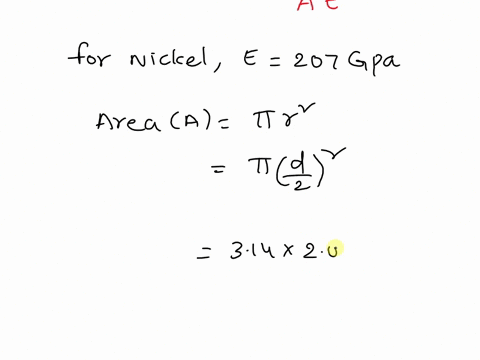 A E
for nickel, E = 207 Gpa
Area (A) = πr²
= π(d/2)²
= 3.14 × 2.0